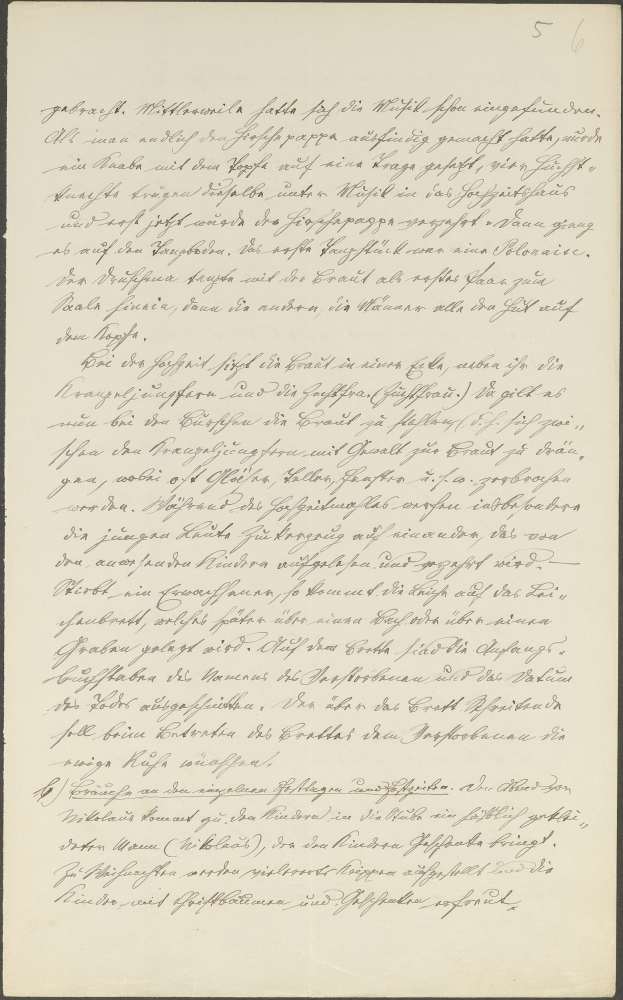 5 6
gebracht. Mittlerweile hatte sich die Musik schon eingefunden.
Als man endlich den Hirschepappe ausfindig gemacht hatte, wurde
ein Knabe mit dem Topfe auf eine Trage gesetzt, vier Hüchst-
knechte trugen dieselbe unter Musik in das Hochzeitshaus
und erst jetzt wurde der Hirschepappe verzehrt. Dann gieng
es auf den Tanzboden. Das erste Tanzstück war eine Polonaise.
Der Druschma tanzte mit der Braut als erstes Paar zum
Saale hinein, dann die andern, die Männer alle den Hut auf
dem Kopfe.
Bei der Hochzeit sitzt die Braut in einer Ecke, neben ihr die
Kranzeljungfern und die Zuchtfra. (Zuchtfrau.) Da gilt es
nun bei den Burschen die Braut zu stehlen (d. h. sich zwi-
schen den Kranzeljungfern mit Gewalt zur Braut zu drän-
gen, wobei oft Gläser, Teller, Fenster u. s. w. zerbrochen
werden. Während des Hochzeitmahles werfen insbesondere
die jungen Leute Zuckerzeug auf einander, das von
den anwesenden Kindern aufgelesen und verzehrt wird. —
Stirbt ein Erwachsener, so kommt die Leiche auf das Lei-
chenbrett, welches später über einen Bach oder über einen
Graben gelegt wird. Auf dem Brette sind die Anfangs-
buchstaben des Namens des Verstorbenen und das Datum
des Todes ausgeschnitten. Der über das Brett Schreitende
soll beim Betreten des Brettes dem Verstorbenen die
ewige Ruhe wünschen.
b) Bräuche an den einzelnen Festtagen und Festzeiten. Den Abend vor
Nikolaus kommt zu den Kindern in die Stube ein häßlich geklei-
deter Mann (Nikolaus), der den Kindern Geschenke bringt.
Zu Weihnachten werden vielerorts Krippen aufgestellt und die
Kinder mit Christbäumen und Geschenken erfreut.